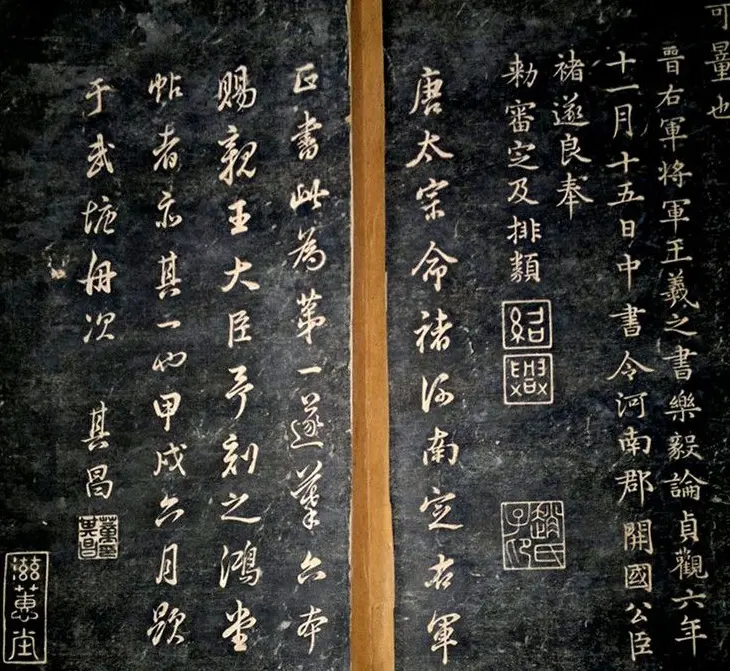 可量也
晉右軍將軍王羲之書樂毅論貞觀六年
十一月十五日中書令河南郡開國公臣
褚遂良奉
勅審定及排類
紹興
趙氏子印
唐太宗命褚河南定右軍
正書此為第一遂摹六本
賜親王大臣予刻之鴻堂
帖者亦其一也甲戍六月題
于武塘舟次 其昌
董其昌
滋蕙堂